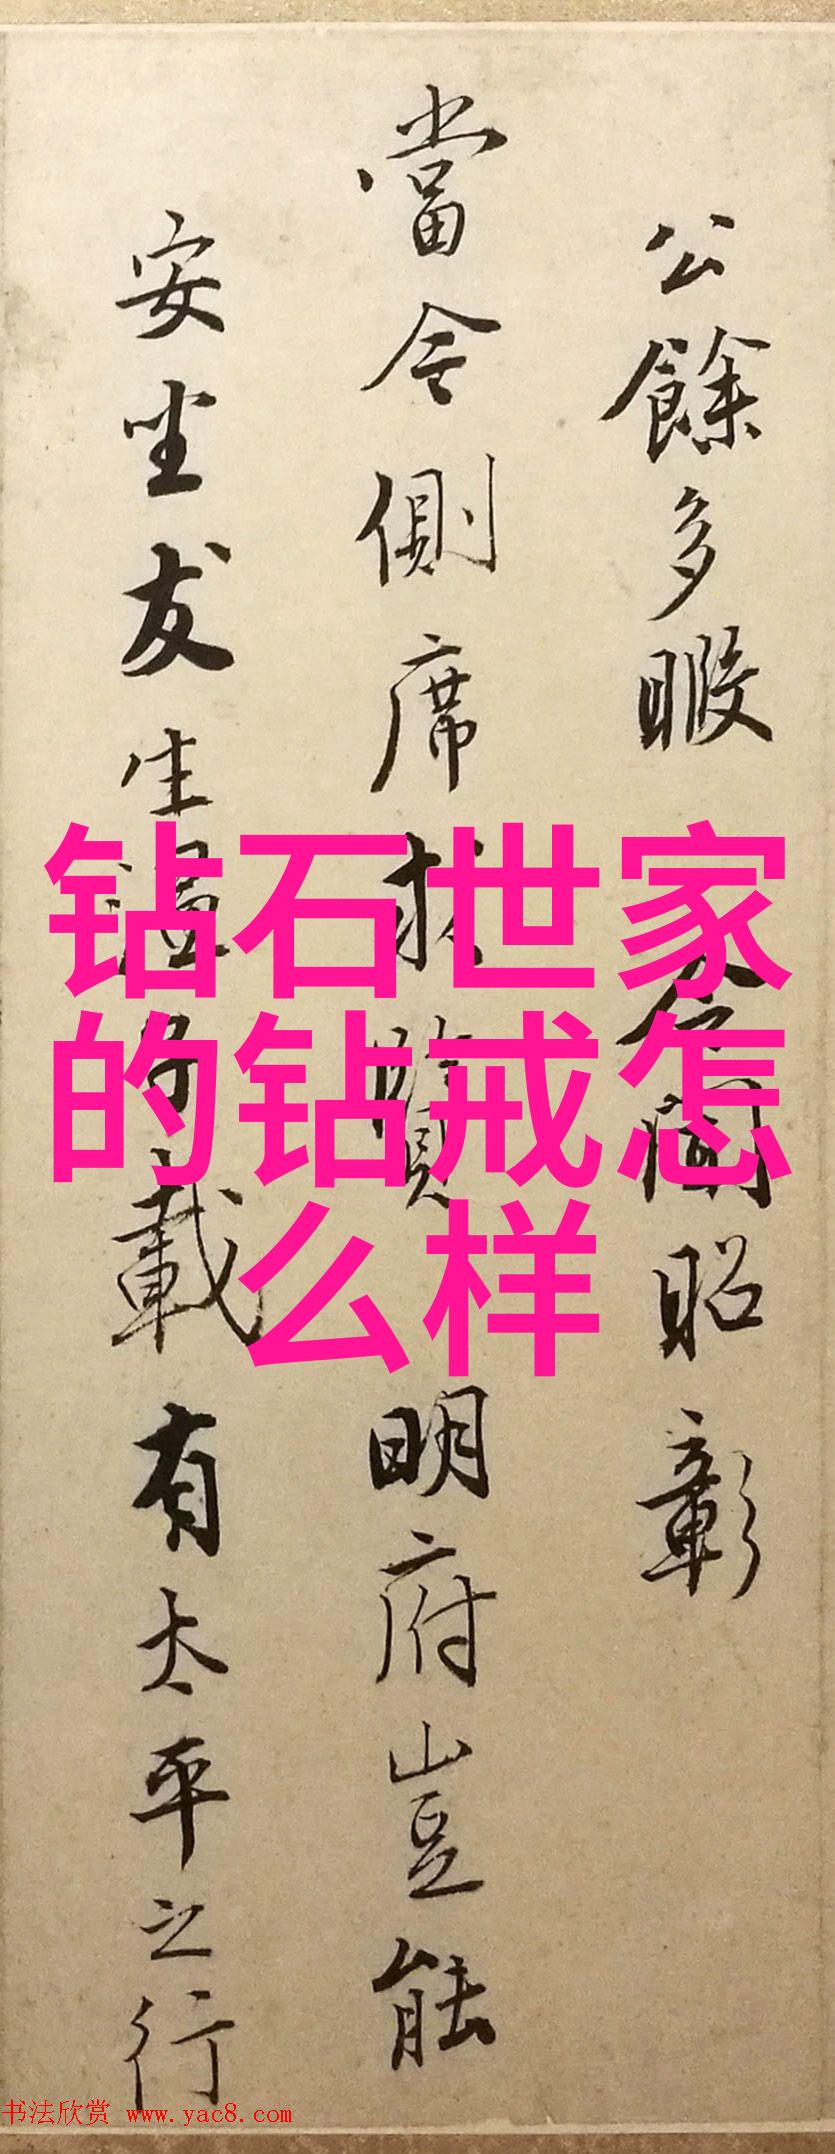 公餘多暇 令聞昭彰
當令側席求賢 明府豈能
安坐友生 載有太平之行
钻石世家
的钻戒怎
么样
书法欣赏 www.yac8.com